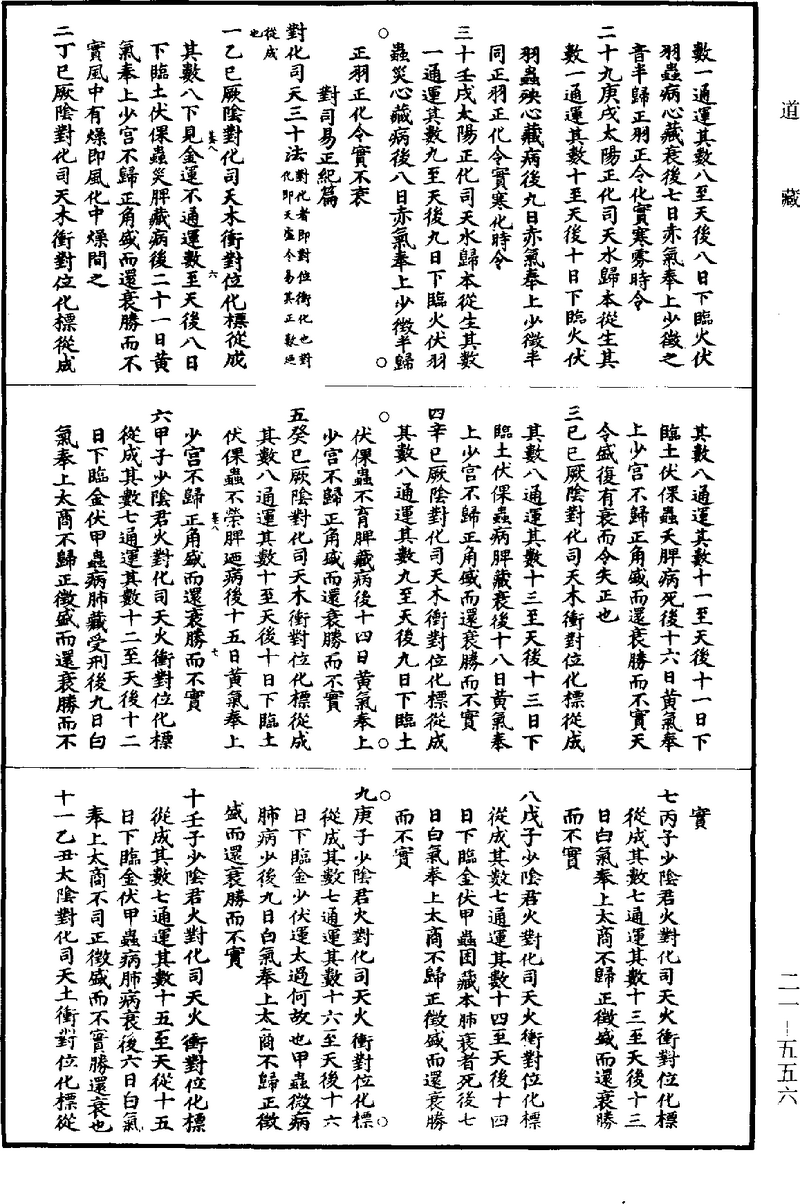 道藏
數一通運其數八至天後八日下臨火伏
羽蟲病心藏衰後七日赤氣奉上少徵之
音半歸正羽正令化實寒雰時令
二十九庚戌太陽正化司天水歸本從生其
數一通運其數十至天後十日下臨火伏
羽蟲殃心藏病後九日赤氣奉上少徵半
同正羽正化令實寒化時令
三十壬戌太陽正化司天水歸本從生其數
一通運其數九至天後九日下臨火伏羽
蟲災心藏病後八日亦氣奉上少徵半歸
正羽正化令實不衰
對司易正紀篇
對化司天三十法對化者即對位衝化也對化即天虛令易其正數迺從成也
一乙巳厥陰對化司天木衝對位化標從成
其數八下見金運不通運數至天後八日
下臨土伏倮蟲災脾藏病後二十一日黃
氣奉上少宮不歸正角盛而還衰勝而不
實風中有燥即風化中燥間之
二丁巳厥陰對化司天木衝對位化標從成
其數八通運其數十一至天後十一日下
臨土伏倮蟲夭脾病死後十六日黃氣奉
上少宮不歸正角盛而還衰勝而不實天
令盛復有衰而令失正也
三己巳厥陰對化司天木衝對位化標從成
其數八通運其數十三至天後十三日下
臨土伏倮蟲病脾藏衰後十八日黃氣奉
上少宮不歸正角盛而還衰勝而不實
四辛巳厥陰對化司天木衝對位化標從成
其數八通運其數九至天後九日下臨土
伏倮蟲不育脾藏病後十四日黃氣奉上
少宮不歸正角盛而還衰勝而不實
五癸巳厥陰對化司天木衝對位化標從成
其數八通運其數十至天後十日下臨土
伏倮蟲不榮脾迺病後十五日黃氣奉上
少宮不歸正角盛而還衰勝而不實
六甲子少陰君火對化司天火衝對位化標
從成其數七通運其數十二至天後十二
日下臨金伏甲蟲病肺藏受刑後九日白
氣奉上太商不歸正徵盛而還衰勝而不
實
七丙子少陰君火對化司天火衝對位化標
從成其數七通運其數十三至天後十三
日白氣奉上太商不歸正徵盛而還衰勝
而不實
八戊子少陰君火對化司天火衝對位化標
從成其數七通運其數十四至天後十四
日下臨金伏甲蟲困藏本肺衰者死後七
日白氣奉上太商不歸正徵盛而還衰勝
而不實
九庚子少陰君火對化司天火衝對位化標
從成其數七通運其數十六至天後十六
日下臨金少伏運太過何故也甲蟲微病
肺病少後九日白氣奉上太商不歸正徵
盛而還衰勝而不實
十壬子少陰君火對化司天火衝對位化標
從成其數七通運其數十五至天從十五
日下臨金伏甲蟲病肺病衰後六日白氣
奉上太商不司正徵盛而不實勝還衰也
十一乙丑太陰對化司天土衝對位化標從
二一—五五六